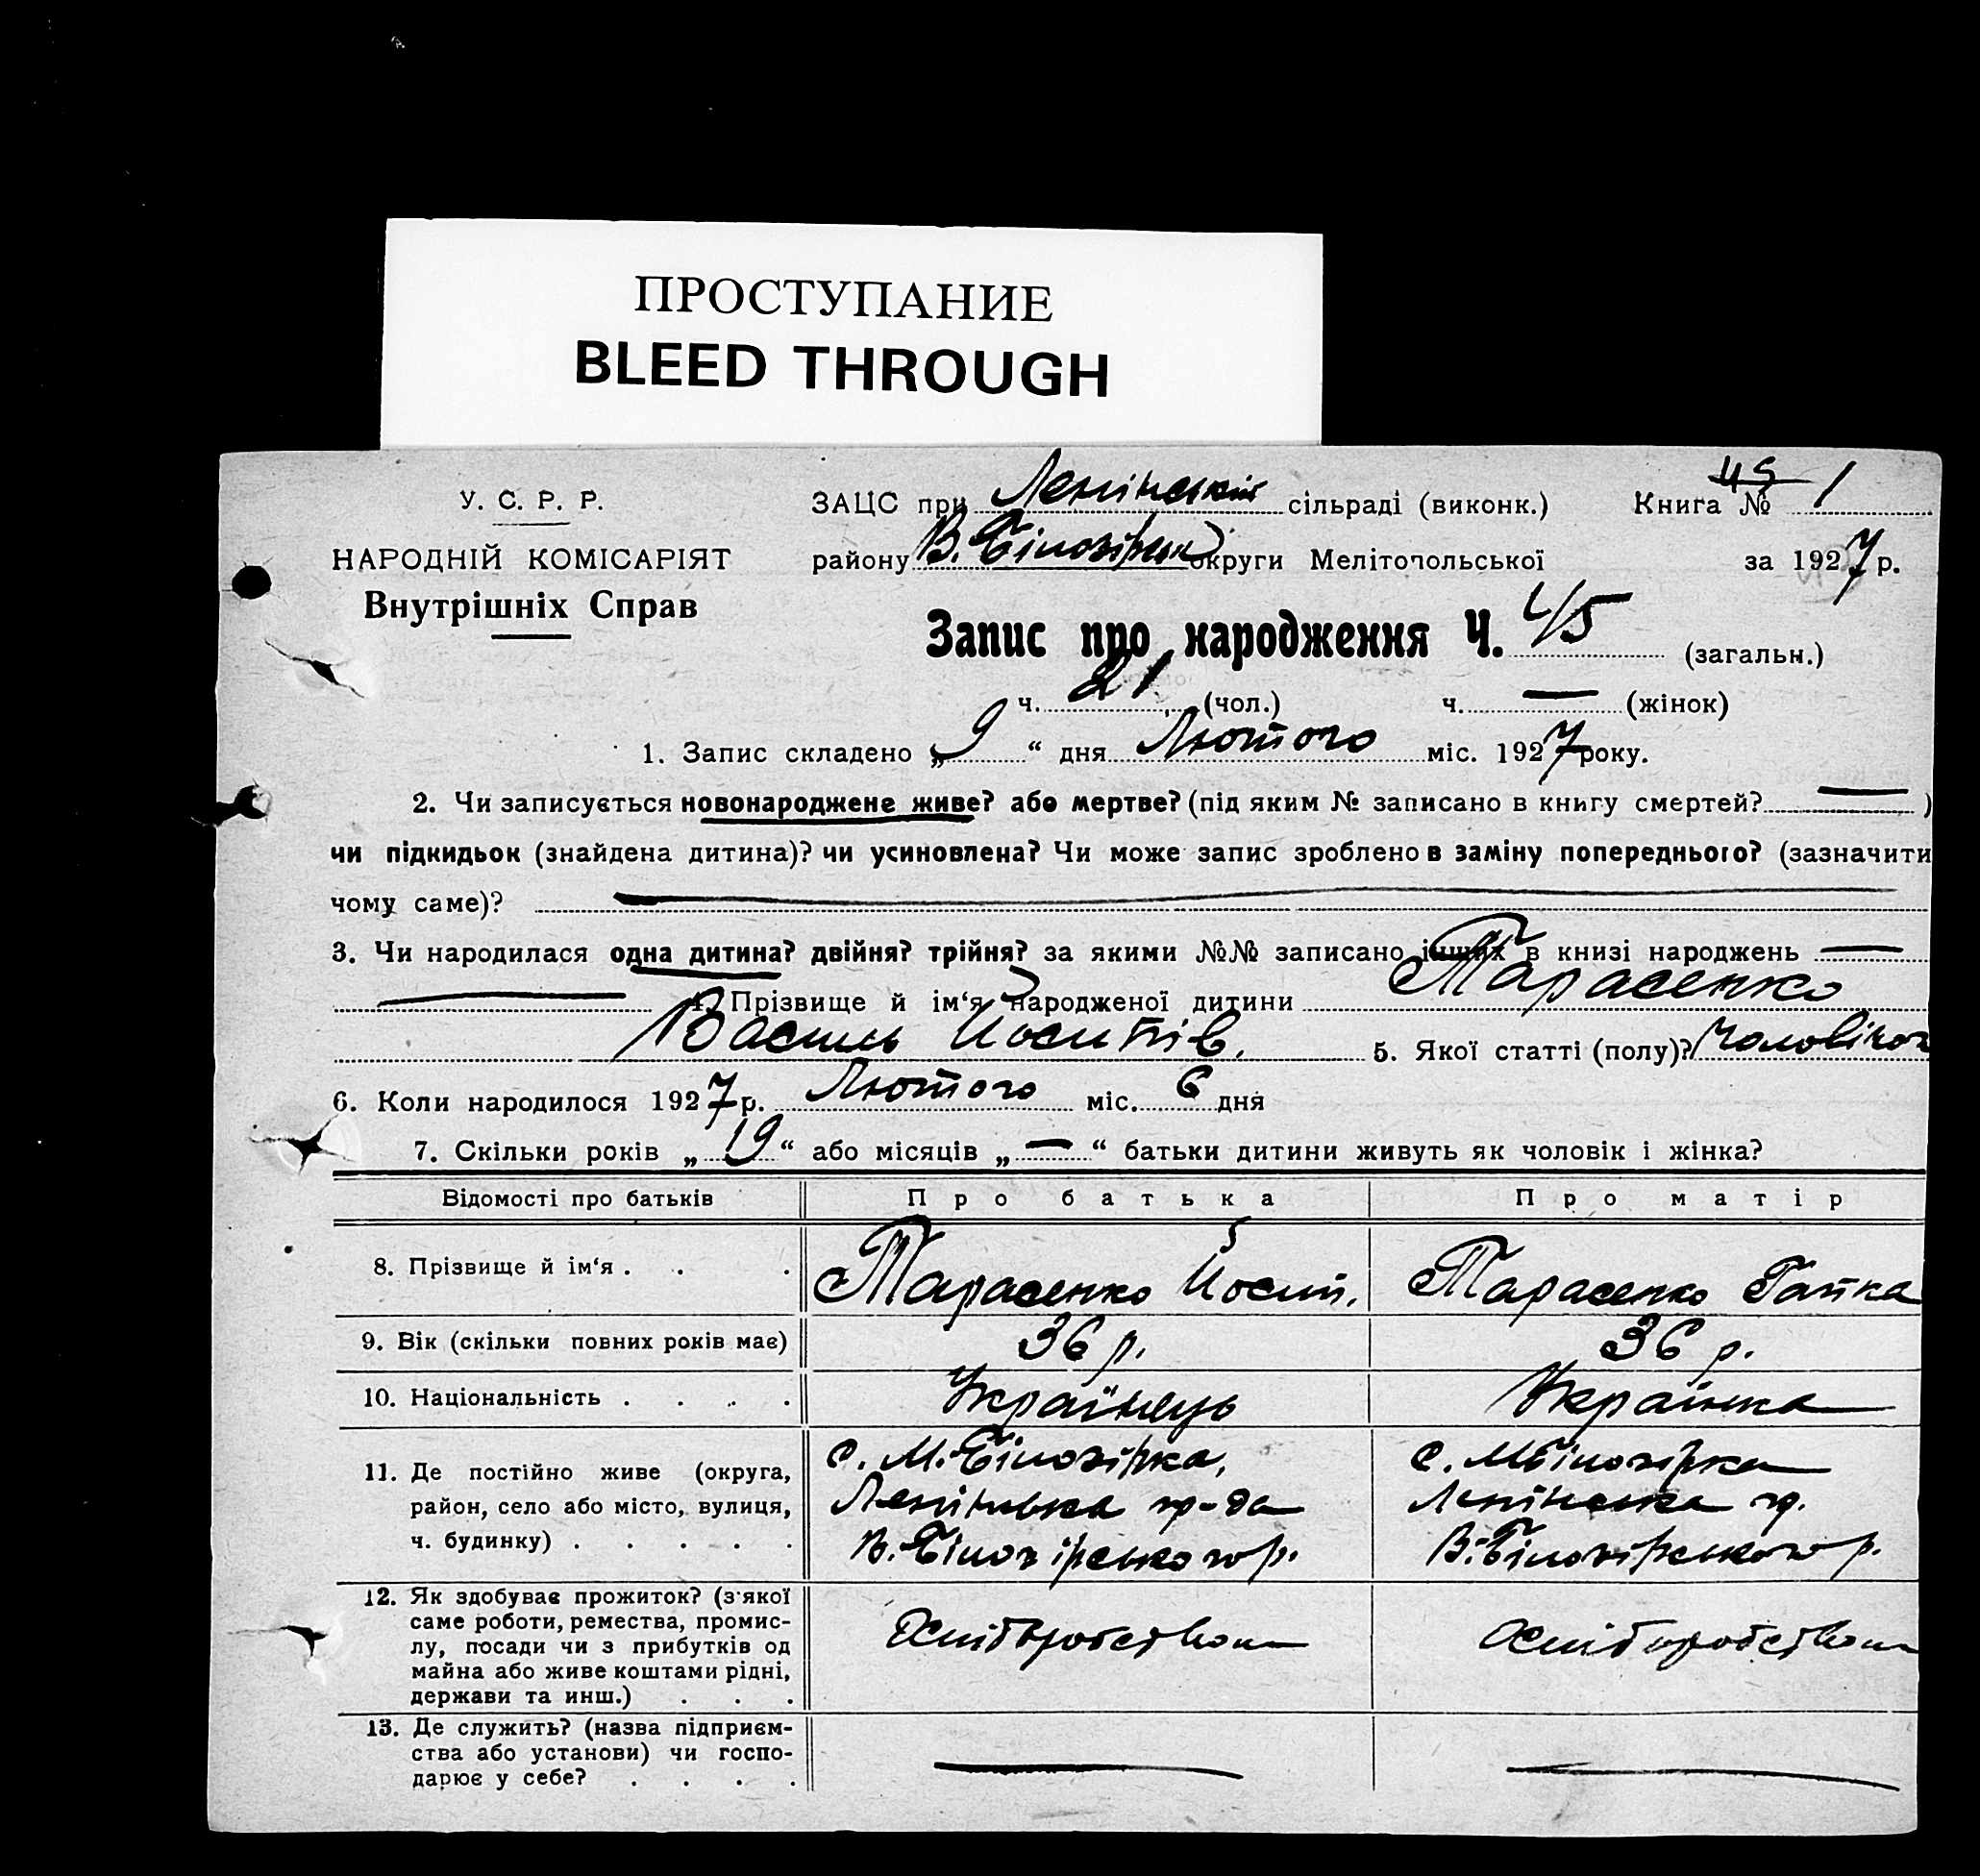 ПРОСТУПАНИЕ
BLEED THROUGH
У. С. Р. Р.
НАРОДНІЙ КОМІСАРІЯТ
Внутрішніх Справ
ЗАЦС при Ленінській сільраді (виконк.)
45
Книга № 1
району В. Білозірськ округи Мелітопольської за 1927 р.
Запис про народження Ч. 45 (загальн.)
ч. 21 (чол.) ч. — (жінок)
1. Запис складено „9“ дня Лютого міс. 1927 року.
2. Чи записується новонароджене живе? або мертве? (під яким № записано в книгу смертей? — )
чи підкидьок (знайдена дитина)? чи усиновлена? Чи може запис зроблено в заміну попереднього? (зазначити
чому саме)? —
3. Чи народилася одна дитина? двійня? трійня? за якими №№ записано інших в книзі народжень —
— 4. Прізвище й ім‘я народженої дитини Тарасенко
Василь Йосипів. 5. Якої статті (полу)? Чоловічої
6. Коли народилося 1927 р. Лютого міс. 6 дня
7. Скільки років „19“ або місяців „—“ батьки дитини живуть як чоловік і жінка?
Відомості про батьків Про батька Про матір
8. Прізвище й ім‘я . . . Тарасенко Йосип. Тарасенко Гапка
9. Вік (скільки повних років має) 36 р. 36 р.
10. Національність . . . . Українець Українка
11. Де постійно живе (округа,
район, село або місто, вулиця,
ч. будинку) . . . . .
с. М. Білозірка,
Ленінська гр-да
В. Білозірського р.
с. М Білозірка
Ленінська гр.
В. Білозірського р.
12. Як здобуває прожиток? (з‘якої
саме роботи, ремества, промис-
лу, посади чи з прибутків од
майна або живе коштами рідні,
держави та инш.) . . .
13. Де служить? (назва підприєм-
ства або установи) чи госпо-
дарює у себе? . . . .
— —